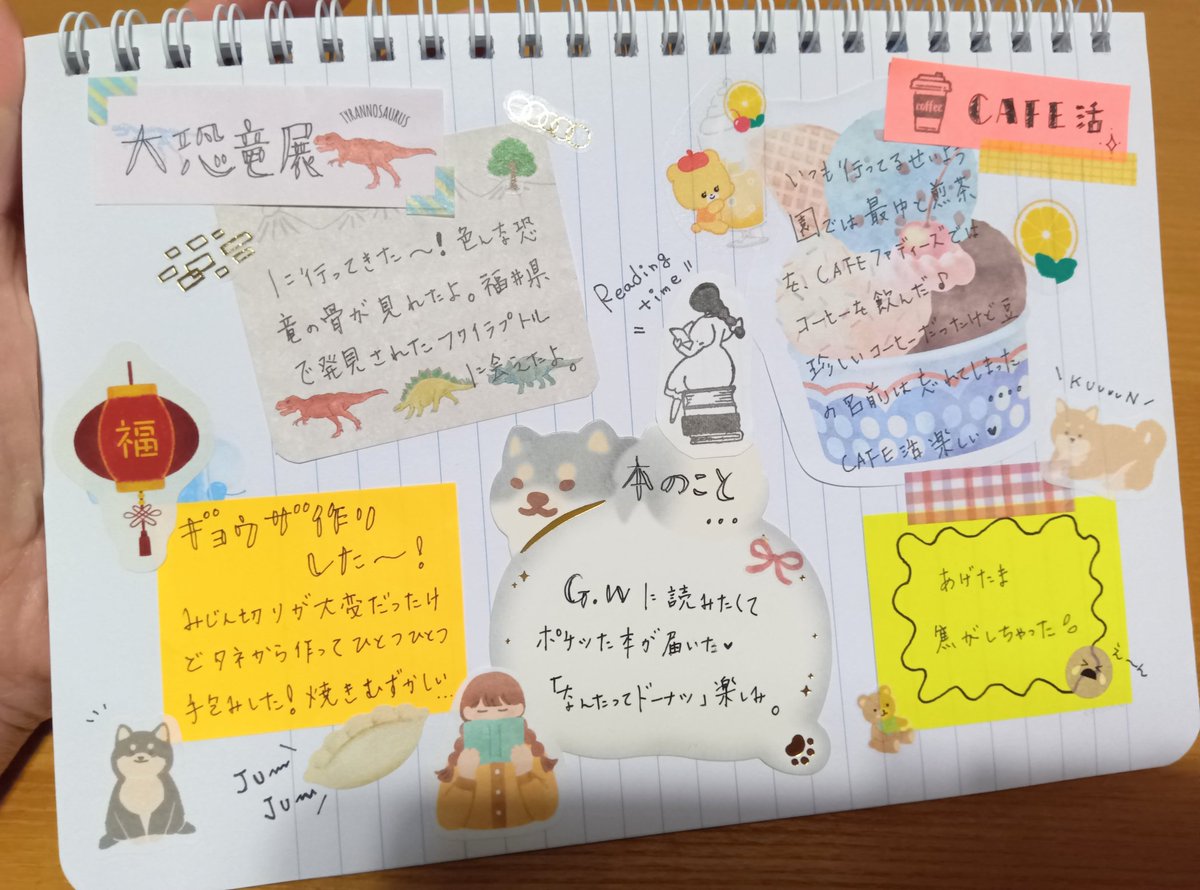 大恐竜展
TYRANNOSAURUS
に行ってきた〜！色んな恐
竜の骨が見れたよ。福井県
で発見されたフクイラプトル
に会えたよ。
coffee
CAFE活
いつも行ってるせいよう
園では最中と煎茶
を、CAFEファディーズでは
コーヒーを飲んだ♪
珍しいコーヒーだったけど豆
の名前は忘れてしまった
....
CAFE活楽しい♥
Reading
time"
=
KUuuuN
福
ギョウザ作り
した〜！
みじん切りが大変だったけ
どタネから作ってひとつひとつ
手包みした！焼きむずかしい...
Jum
Jum
本のこと
...
G.Wに読みたくて
ポケッた本が届いた♥
「なんたってドーナツ」楽しみ。
あげたま
焦がしちゃった
え〜ん